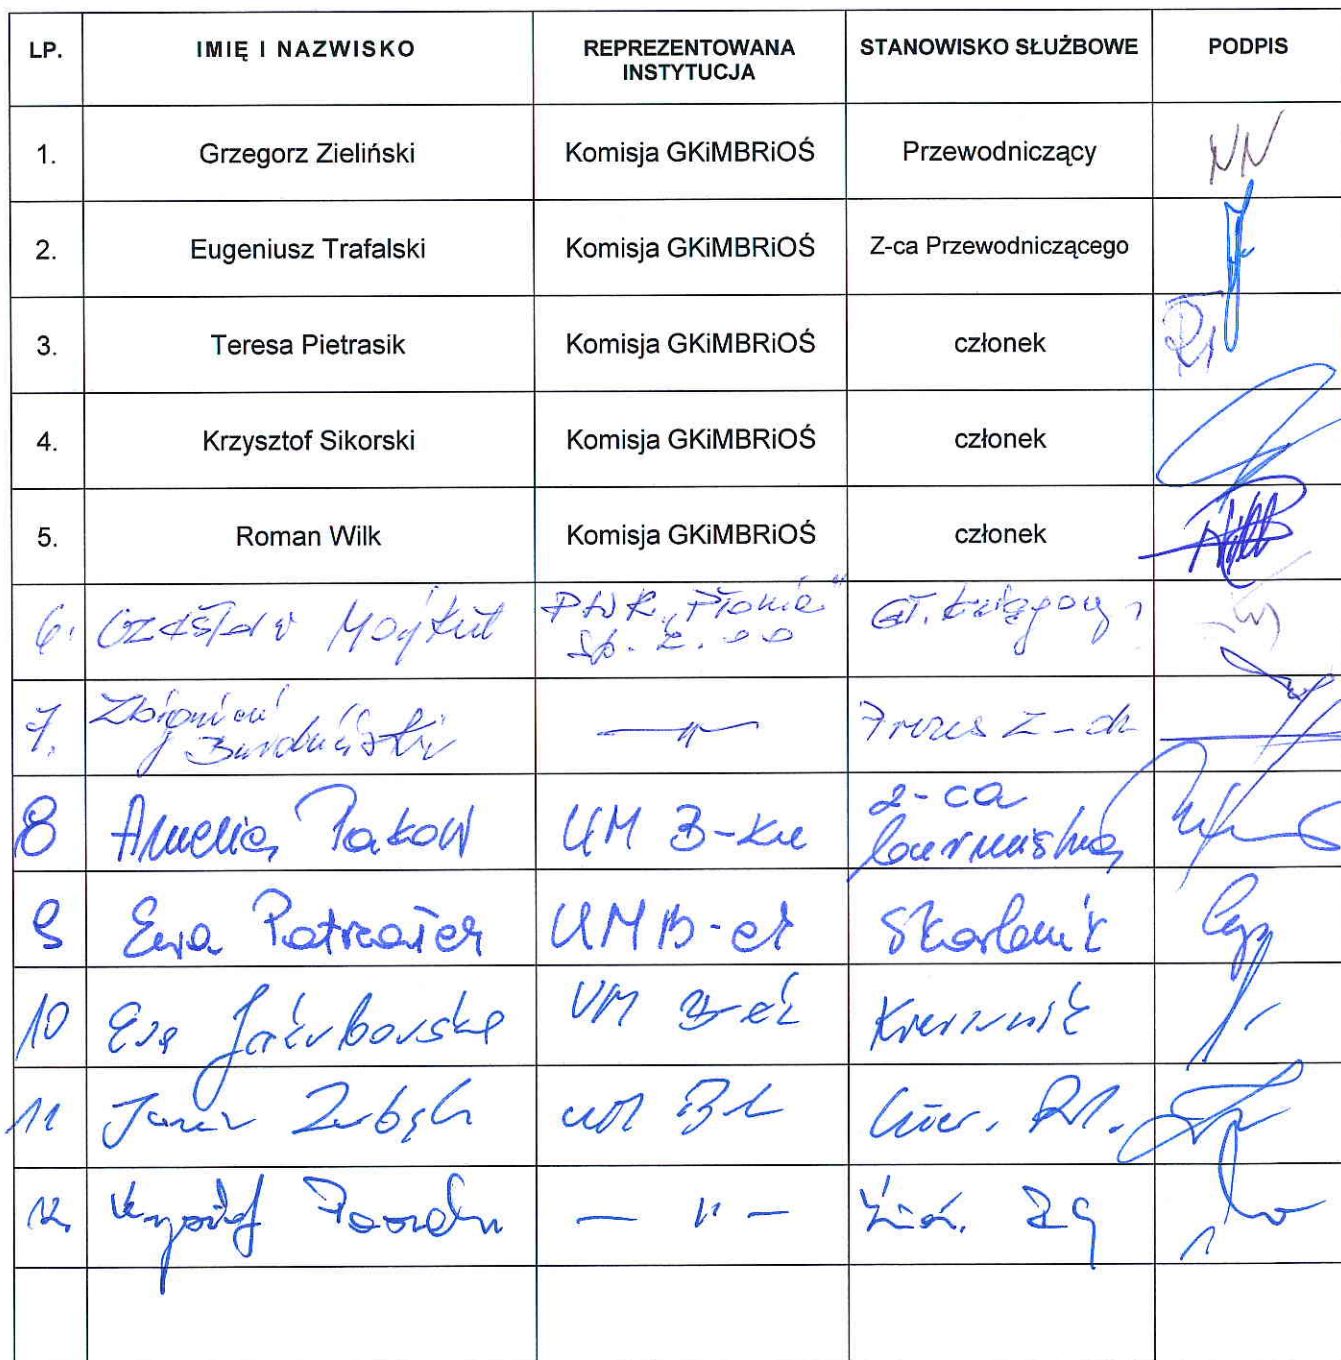 LP. IMIĘ I NAZWISKO REPREZENTOWANA INSTYTUCJA STANOWISKO SŁUŻBOWE PODPIS
1. Grzegorz Zieliński Komisja GKiMBRiOŚ Przewodniczący
2. Eugeniusz Trafalski Komisja GKiMBRiOŚ Z-ca Przewodniczącego
3. Teresa Pietrasik Komisja GKiMBRiOŚ członek
4. Krzysztof Sikorski Komisja GKiMBRiOŚ członek
5. Roman Wilk Komisja GKiMBRiOŚ członek
6. Czesław Mojkut PWK „Płonia" Sp. z. o o Gł. księgowy
7. Zbigniew —〃— Prezes Z-du
8 Amelia Pakow UM B-ku z-ca burmistrza
9 Ewa UM B-ek Skarbnik
10 Ewa Jakubowska UM B-ek Kierownik
11 UM
12. Krzysztof — 〃 —